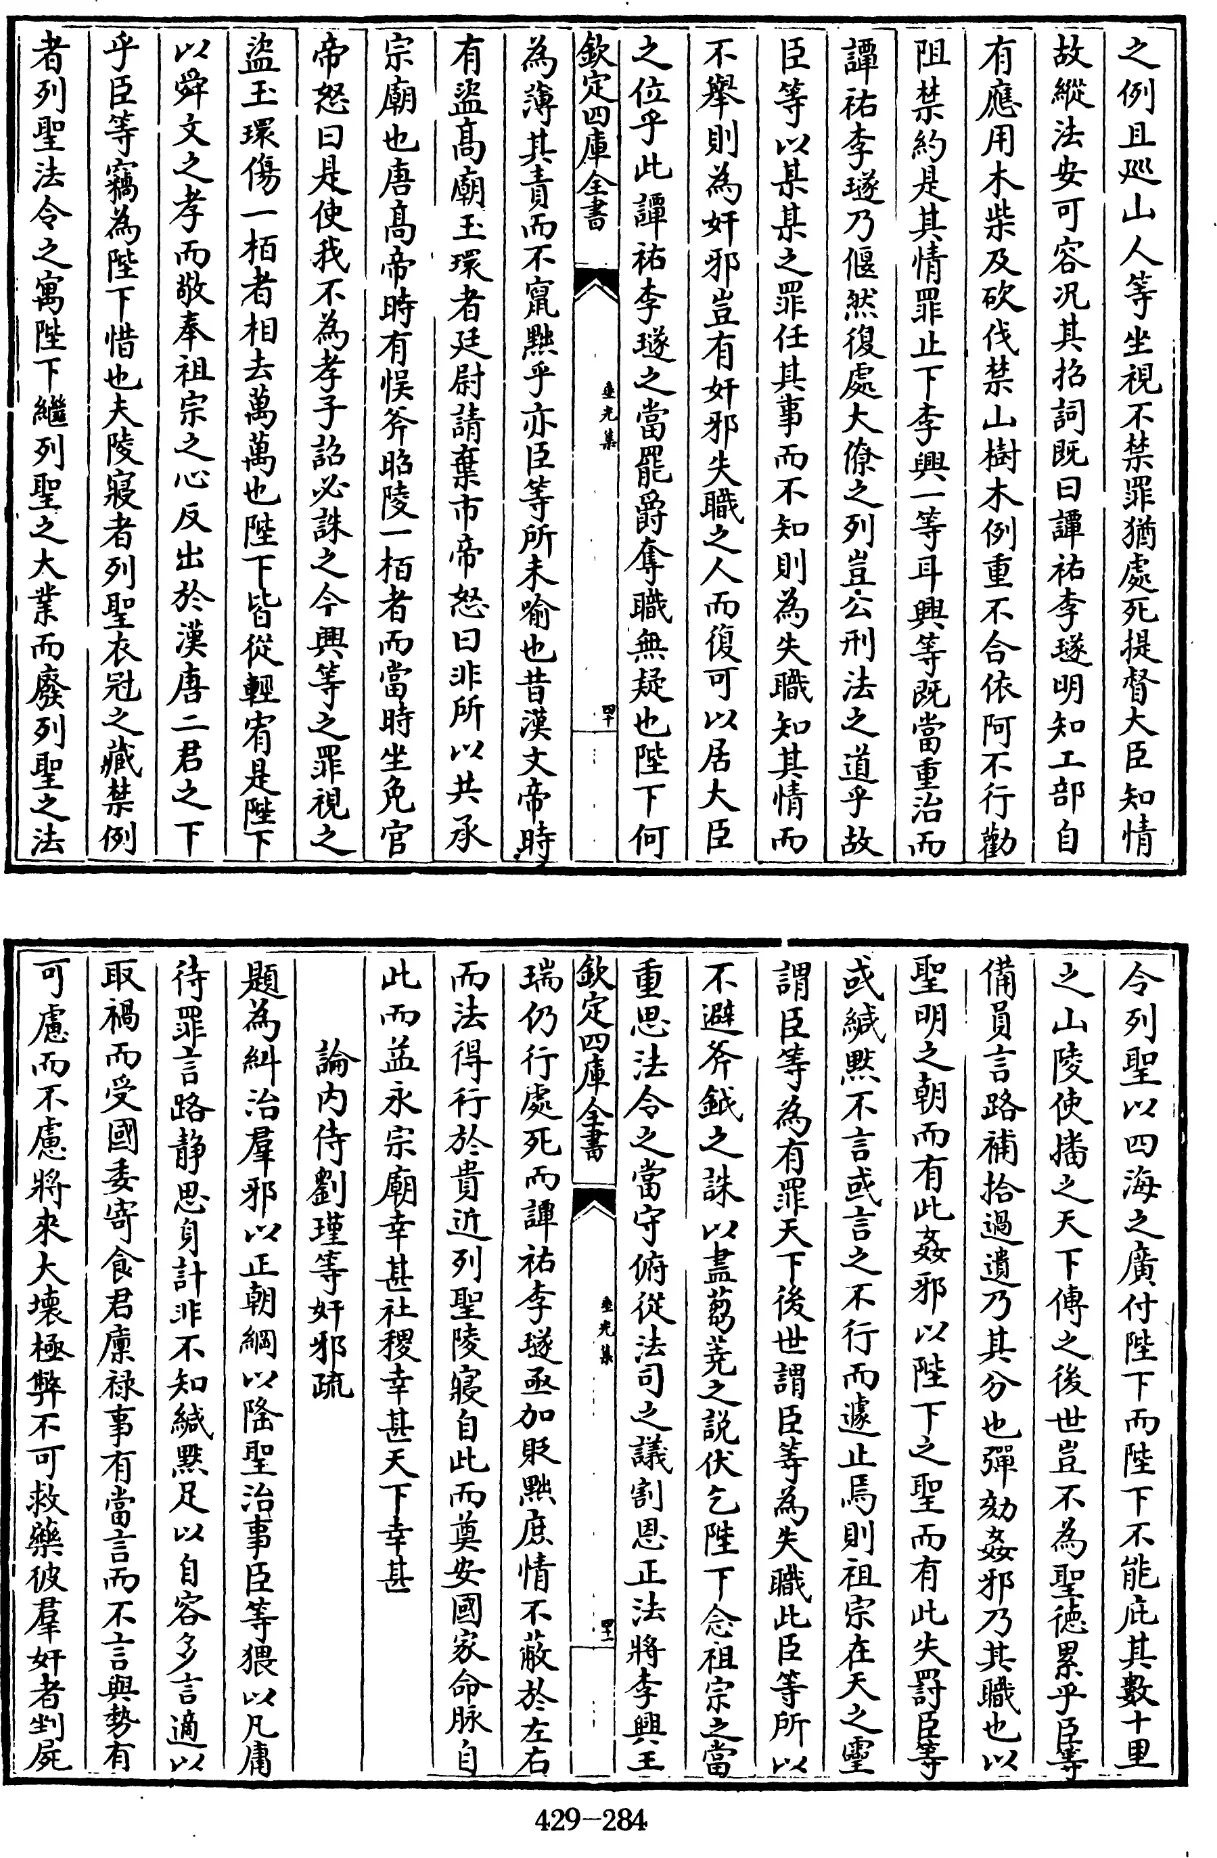 之例且廵山人等坐視不禁罪猶處死提督大臣知情
故縱法安可容况其招詞既曰譚祐李璲明知工部自
有應用木柴及砍伐禁山樹木例重不合依阿不行勸
阻禁約是其情罪止下李興一等耳興等既當重治而
譚祐李璲乃偃然復處大僚之列豈公刑法之道乎故
臣等以某某之罪任其事而不知則為失職知其情而
不舉則為奸邪豈有奸邪失職之人而復可以居大臣
之位乎此譚祐李璲之當罷爵奪職無疑也陛下何
欽定四庫全書
垂光集
四十
為薄其責而不竄黜乎亦臣等所未喻也昔漢文帝時
有盜高廟玉環者廷尉請棄市帝怒曰非所以共承
宗廟也唐高帝時有悞斧昭陵一栢者而當時坐免官
帝怒曰是使我不為孝子詔必誅之今興等之罪視之
盜玉環傷一栢者相去萬萬也陛下皆從輕宥是陛下
以舜文之孝而敬奉祖宗之心反出於漢唐二君之下
乎臣等竊為陛下惜也夫陵寢者列聖衣冠之藏禁例
者列聖法令之寓陛下繼列聖之大業而廢列聖之法
令列聖以四海之廣付陛下而陛下不能庇其數十里
之山陵使播之天下傳之後世豈不為聖德累乎臣等
備員言路補拾過遺乃其分也彈劾姦邪乃其職也以
聖明之朝而有此姦邪以陛下之聖而有此失罸臣等
或緘默不言或言之不行而遽止焉則祖宗在天之靈
謂臣等為有罪天下後世謂臣等為失職此臣等所以
不避斧鉞之誅以盡芻蕘之説伏乞陛下念祖宗之當
重思法令之當守俯從法司之議割恩正法將李興王
欽定四庫全書
垂光集
四十一
瑞仍行處死而譚祐李璲亟加貶黜庶情不蔽於左右
而法得行於貴近列聖陵寢自此而奠安國家命脉自
此而益永宗廟幸甚社稷幸甚天下幸甚
論内侍劉瑾等奸邪疏
題為糾治羣邪以正朝綱以隆聖治事臣等猥以凡庸
待罪言路静思身計非不知緘默足以自容多言適以
取禍而受國委寄食君廪禄事有當言而不言與勢有
可慮而不慮將來大壊極弊不可救藥彼羣奸者剉屍
429-284